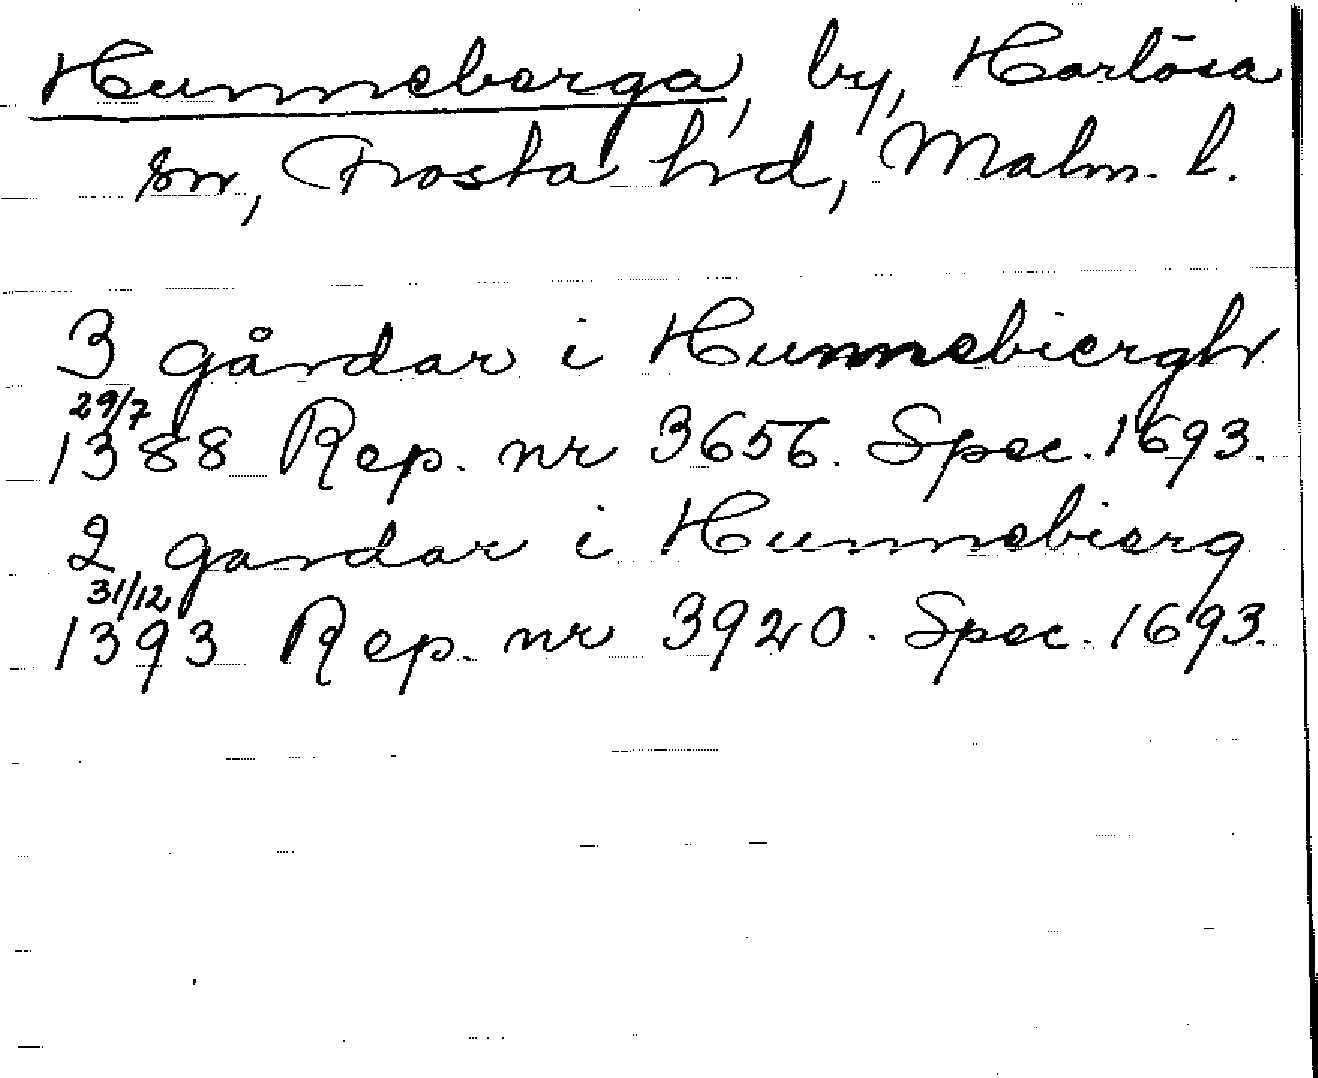 Hunneberga, by, Harlösa
sn, Frosta hrd, Malm. l.
3 gårdar i Hunnebiergh
29/7
1388 Rep. nr 3656. Spec. 1693.
2 gardar i Hunnebierg
31/12
1393 Rep. nr 3920. Spec. 1693.